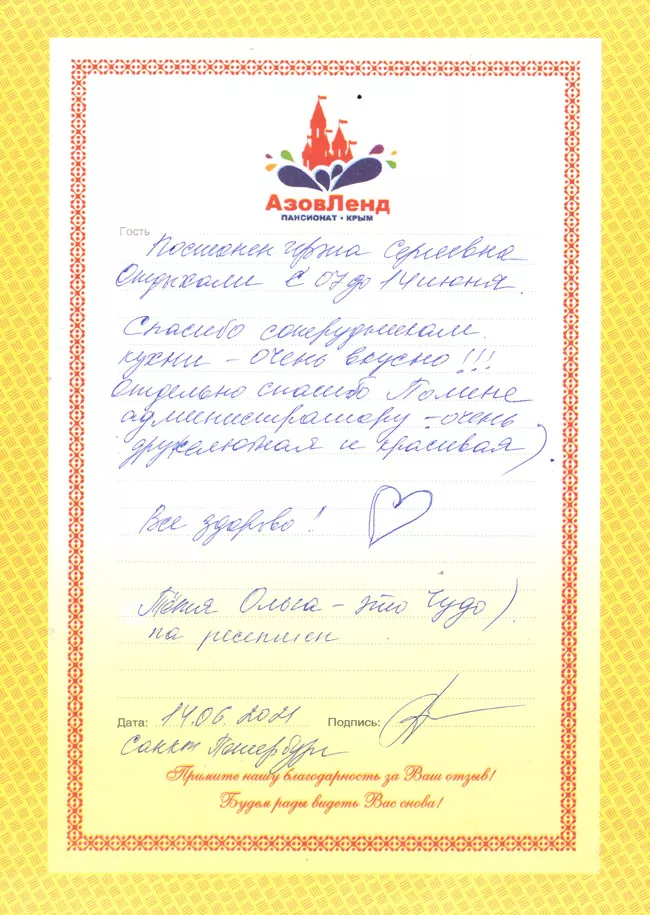 АзовЛенд
ПАНСИОНАТ • КРЫМ
Гость
Сергеевна
Отдыхали с 07 до 14 июня.
Спасибо сотрудникам
кухни – очень вкусно!!!
Отдельно спасибо Полине
администратору – очень
дружелюбная и красивая)
Все здорово!
Тётя Ольга – это Чудо)
на ресепшен
Дата: 14.06.2021 Подпись:
Санкт Петербург
Примите нашу благодарность за Ваш отзыв!
Будем рады видеть Вас снова!